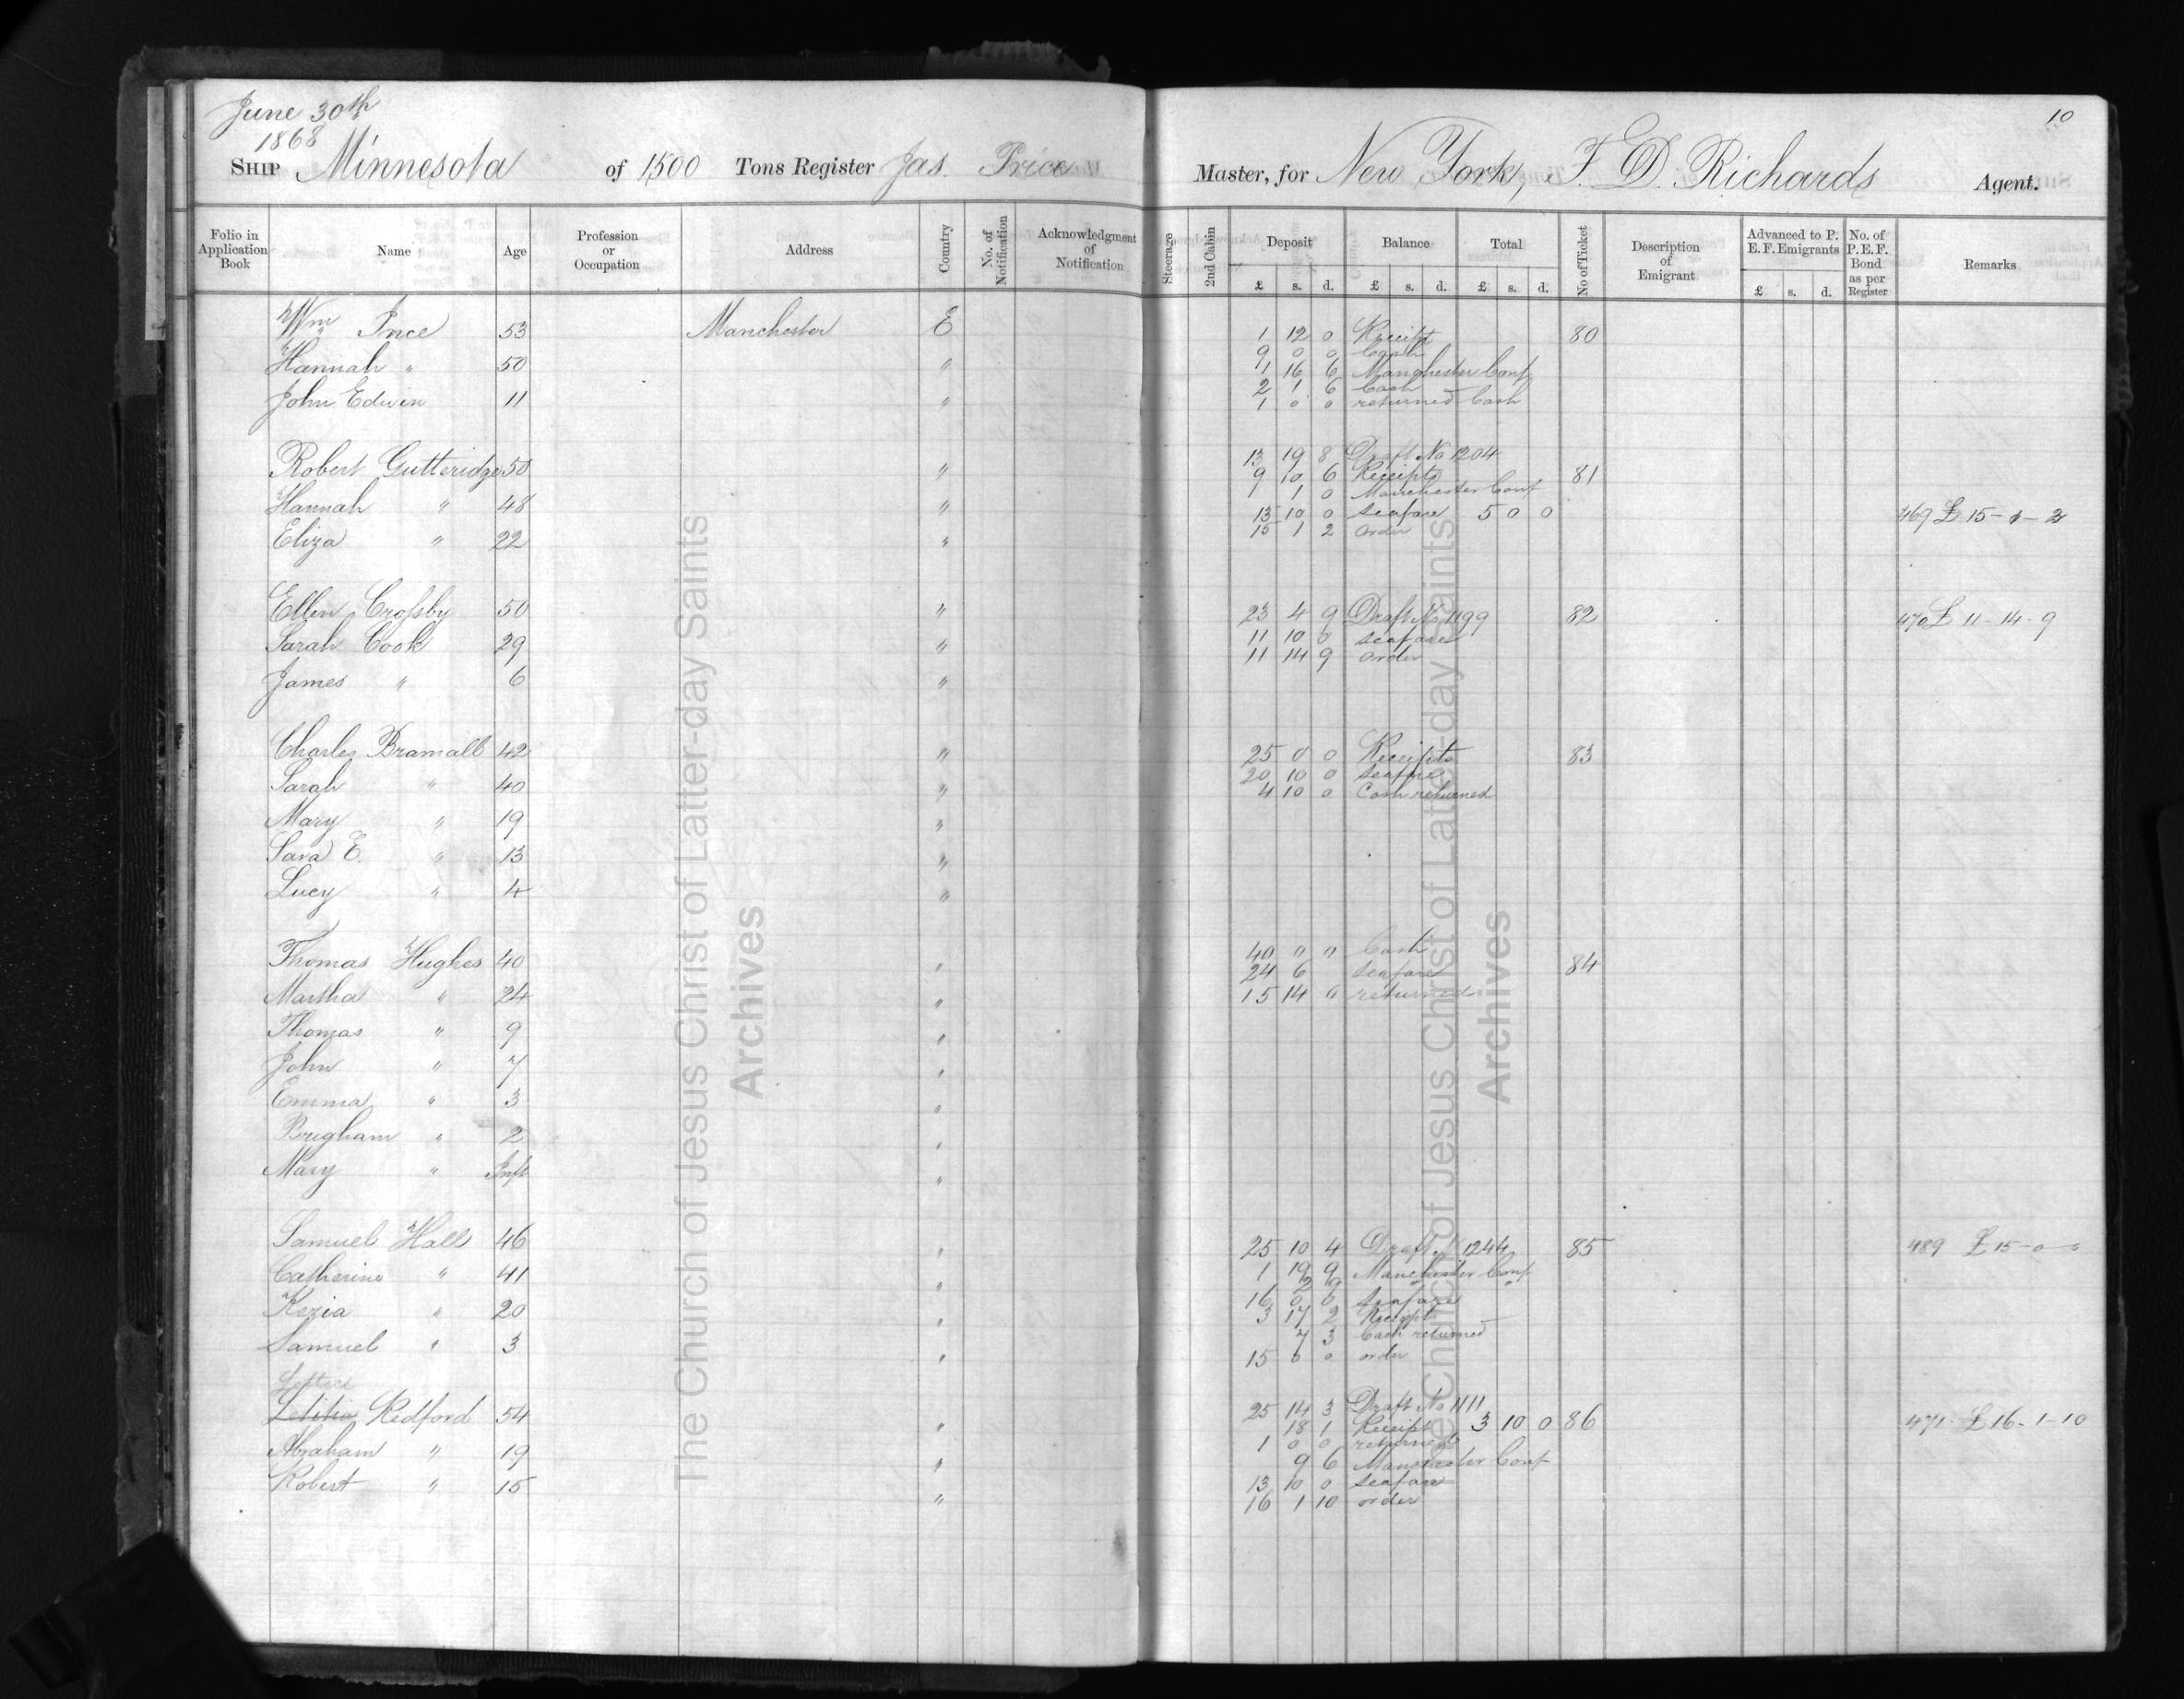 June 30th
1868
10
SHIP Minnesota of 1500 Tons Register Jas. Price Master, for New York, F. D. Richards Agent.
Folio in Application Book Name Age Profession or Occupation Address Country No. of Notification Acknowledgment of Notification Steerage 2nd Cabin Deposit Balance Total No of Ticket Description of Emigrant Advanced to P. E. F. Emigrants No. of P.E.F. Bond as per Register Remarks
£ s. d. £ s. d. £ s. d. £ s. d.
Wm Ince 53 Manchester E 1 12 0 Receipt 80
9 0 0 Cash
Hannah " 50 " 1 16 6 Manchester Conf
2 1 6 Cash
John Edwin 11 " 1 0 0 returned Cash
13 19 8 Draft No 1204
Robert Gutteridge 50 " 9 10 6 Receipts 81
1 0 Manchester Conf
Hannah " 48 " 13 10 0 seafare 5 0 0 469 £ 15-1-2
Eliza " 22 " 15 1 2 order
Ellen Crossby 50 " 23 4 9 Draft No 1199 82 470 £ 11-14-9
Sarah Cook 29 " 11 10 0 seafare
11 14 9 order
James " 6 "
Charles Bramall 42 " 25 0 0 Receipts 83
20 10 0 seafare
Sarah " 40 " 4 10 0 Cash returned
Mary " 19 "
Sara E. " 13 "
Lucy " 4 "
Thomas Hughes 40 " 40 " " Cash 84
24 6 seafare
Martha " 24 " 15 14 " returned
Thomas " 9 "
John " 7 "
Emma " 3 "
Brigham " 2 "
Mary " Inft "
Samuel Hall 46 " 25 10 4 Draft 1244 85 489 £ 15-0-0
Catherine " 41 " 1 19 9 Manchester Conf
2 9
16 0 0 seafare
Kezia " 20 " 3 17 2 Receipt
7 3 Cash returned
Samuel " 3 " 15 0 0 order
Lettice
Letitia Redford 54 " 25 14 3 Draft No 1111
18 1 Receipt 3 10 0 86 471 £ 16-1-10
1 0 0 returned
Abraham " 19 " 9 6 Manchester Conf
Robert " 15 " 13 10 0 seafare
16 1 10 order
The Church of Jesus Christ of Latter-day Saints
Archives
The Church of Jesus Christ of Latter-day Saints
Archives